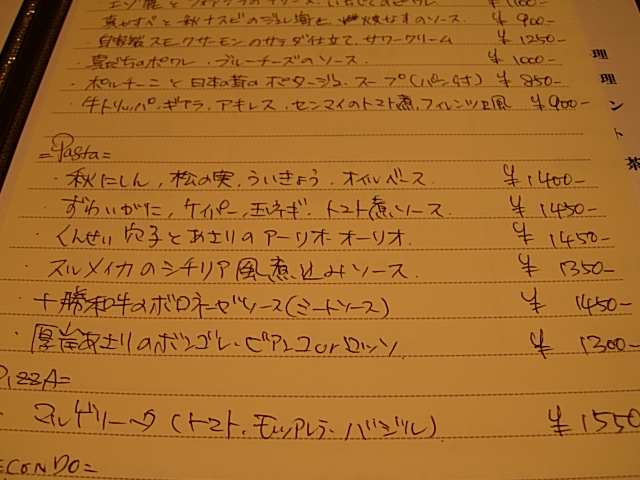 エゾ鹿とフォアグラのテリーヌ ¥1100-
¥900-
自家製スモークサーモンのサラダ仕立て サワークリーム ¥1250-
真だちのポワレ・ブルーチーズのソース ¥1000-
ポルチーニと日本の茸のポタージュ・スープ(パン付) ¥850-
牛トリッパ、ギアラ、アキレス、センマイのトマト煮、フィレンツェ風 ¥900-
=Pasta=
・秋にしん、松の実、ういきょう、オイルベース. ¥1400-
・ずわいがに、ケイパー、玉ネギ、トマト煮ソース ¥1450-
・くんせい穴子とあさりのアーリオ・オーリオ. ¥1450-
・スルメイカのシチリア風煮込みソース. ¥1350-
・十勝和牛のボロネーゼソース(ミートソース) ¥1450-
・厚岸あさりのボンゴレ・ビアンコorロッソ ¥1300-
PIZZA=
・マルゲリータ(トマト、モッツァレラ・バジル) ¥1550
ECONDO=
理
理
ン
ト
茶